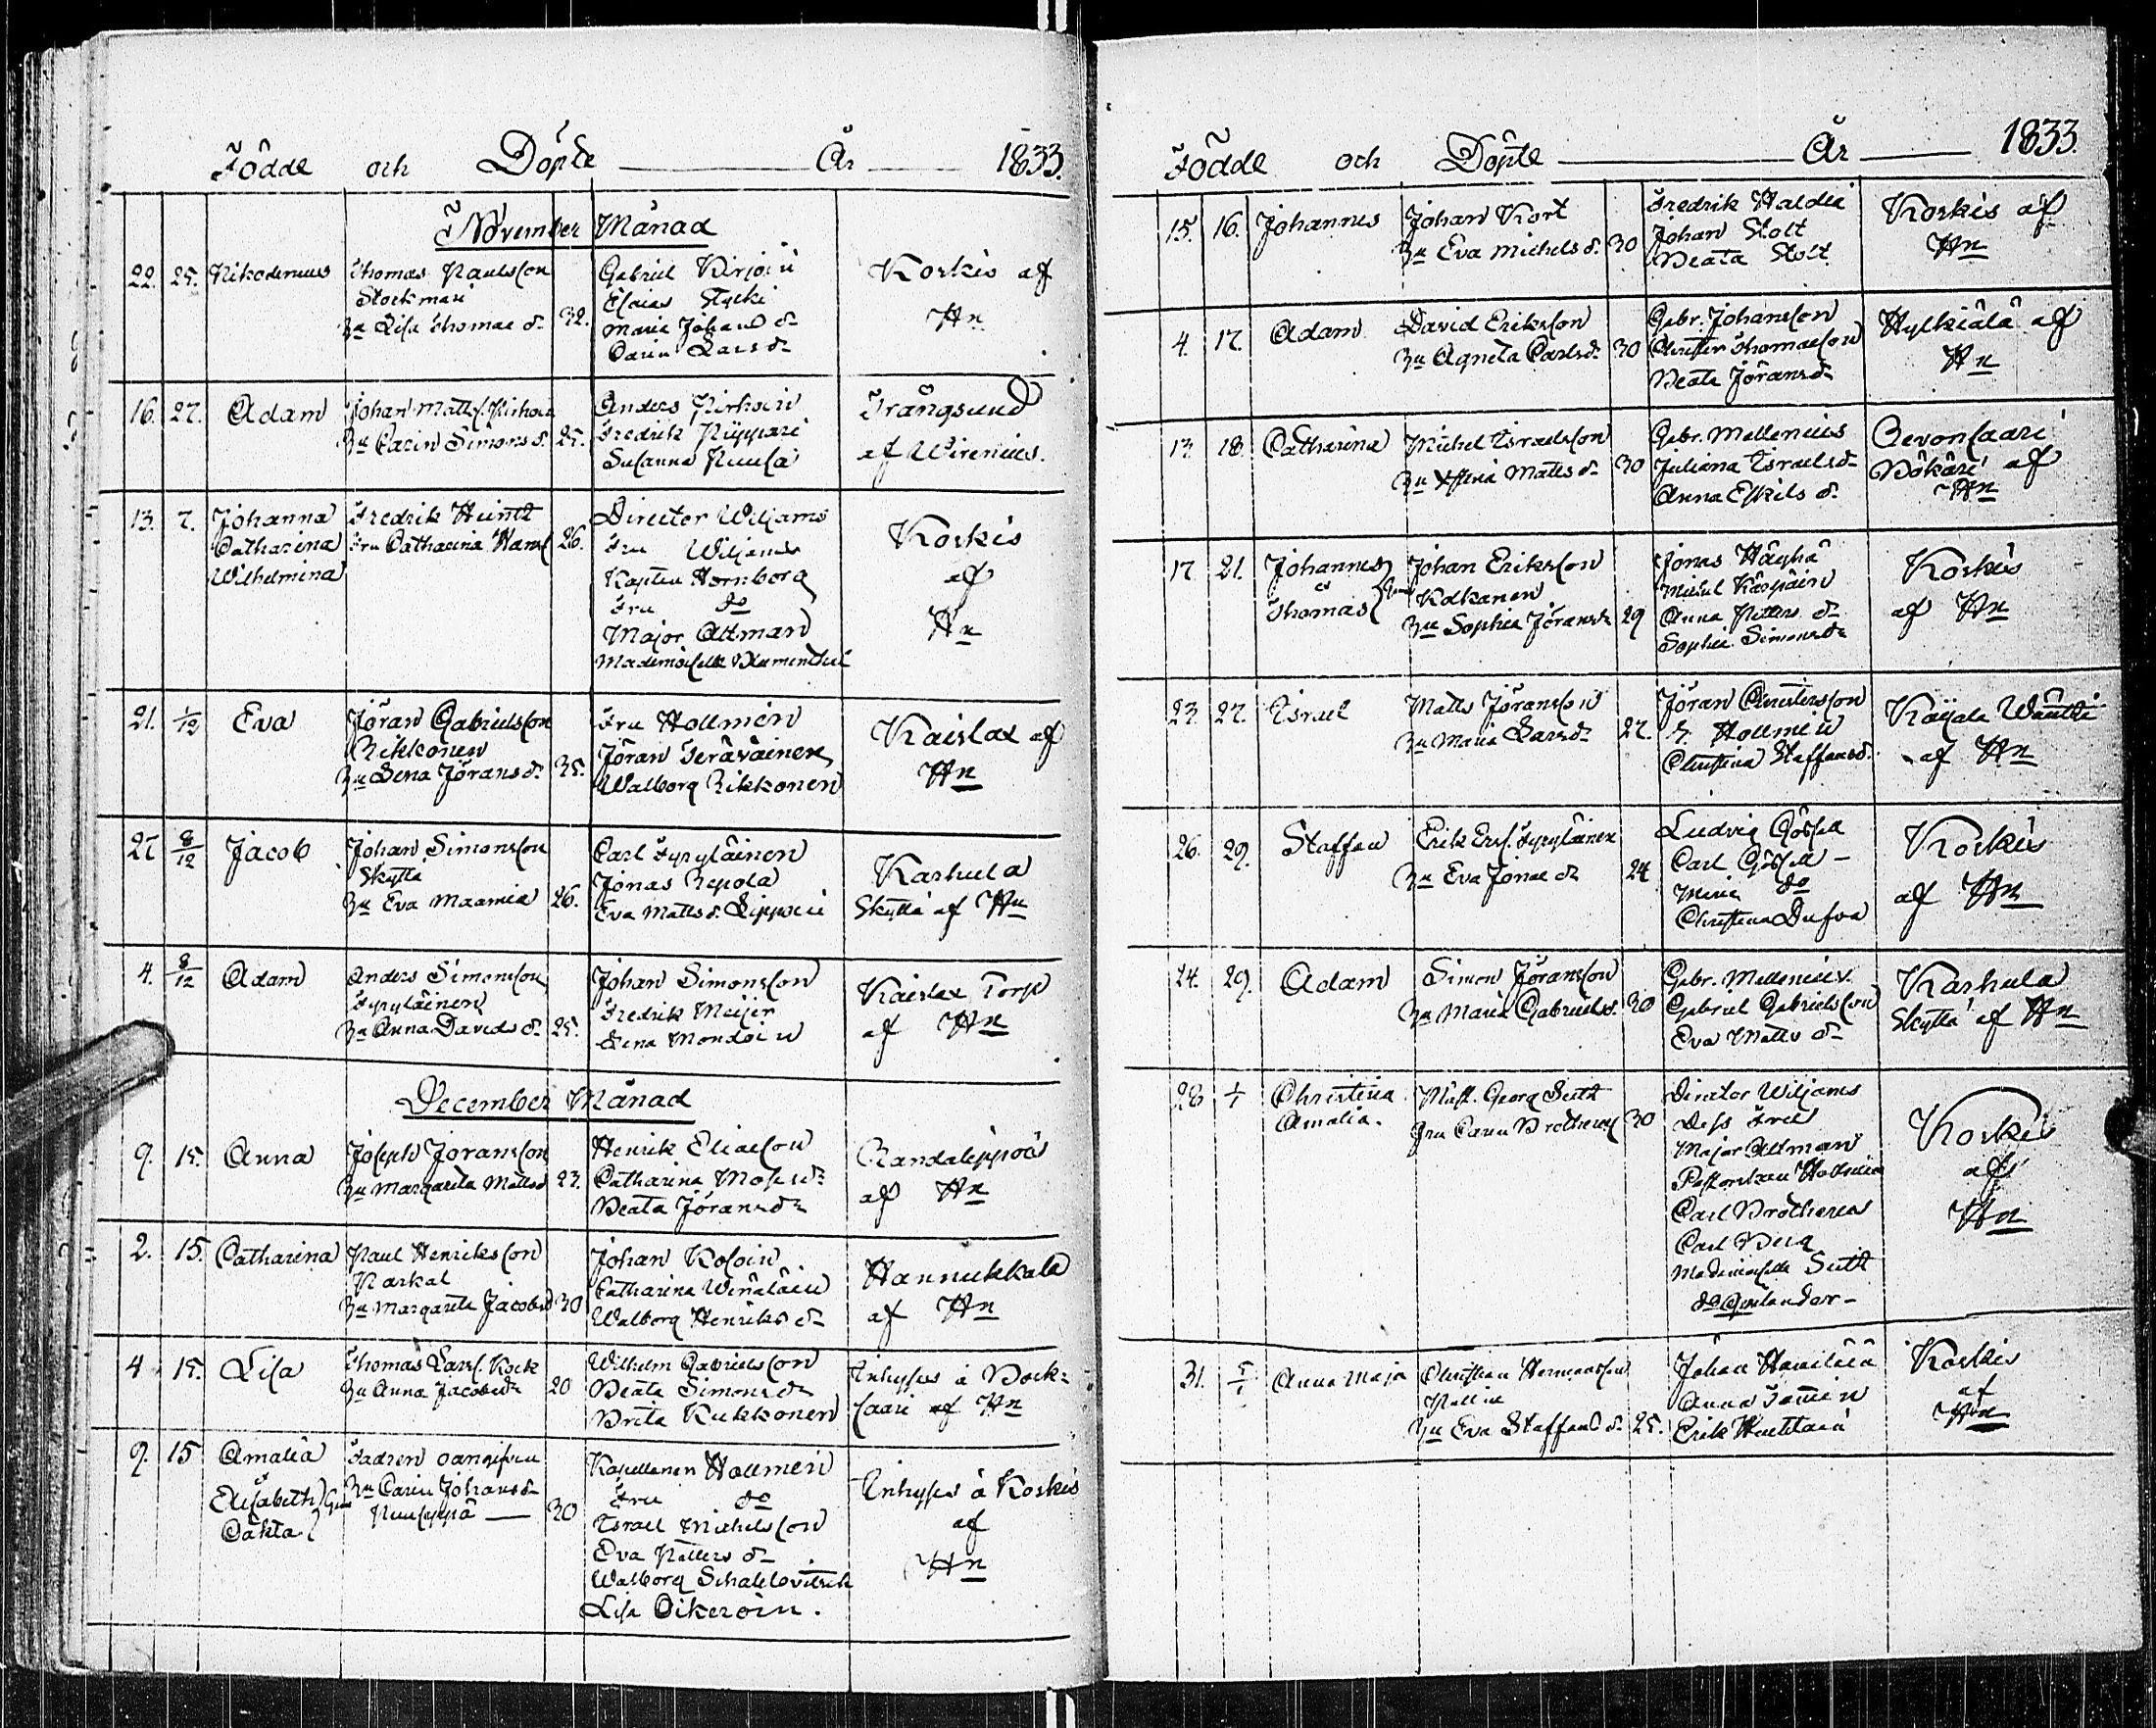 Födde och Döpte År 1833.
November Månad
22. 25. Nikodemus Thomas Paulsson
Stockmari
hu Lisa Thomae dr 32.
Gabriel Kirjoin
Esaias Stycki
Maria Johans dr
Carin Lars dr
Koskis af
Hn
16. 27. Adam Johan Matts.
hu Carin Simons d. 25.
Anders
Fredrik
Susanna
Trångsund
af Wirenius.
13. 7. Johanna
Catharina
Wilhelmina
Fredrik
Fru Catharina 26.
Director Wiljams
Fru Wiljams
Kapten Hornborg
Fru do
Major Attman
Mademoiselle
Koskis
af
Hn
21. 1/12 Eva Jöran Gabrielsson
Rikkonen
hu Lena Jörans dr 35.
Fru Hollmén
Jöran Teräväinen
Walborg Rikkonen
Kaislax af
Hn
27 8/12 Jacob Johan Simonsson
Skyttä
hu Eva Maamia 26.
Carl Tyryläinen
Jonas Repola
Eva Matts d.
Karhula
Skyttä af Hn
4. 8/12 Adam Anders Simonsson
Tyryläinen
hu Anna Davids dr 25.
Johan Simonsson
Fredrik Meijer
Lena Mondoin
Kaislax Torp
af Hn
December Månad
9. 15. Anna Joseph Joransson
hu Margareta Matts d 23.
Henrik Eliaeson
Catharina
Beata Jörans dr
Randalippois
af Hn
2. 15. Catharina Paul Henriksson
hu Margareta Jacobs d 30
Johan Kosoin
Catharina Wenäläin
Walborg Henriks dr
Hannukkala
af Hn
4 15. Lisa Thomas Larss. Kock
hu Anna Jacobs dr 20
Wilhelm Gabrielsson
Beata Simons dr
Brita Kukkonen
Inhyses å Bock=
saari af Hn
9. 15 Amalia
Elisabeth
Fadren oangifven
hu Carin Johans dr
30
Kapellanen Hollmén
Fru do
Israel Michelsson
Eva Petters dr
Walborg
Lisa Oikeroin.
Inhyses å Koskis
af
Hn
Födde och Döpte År 1833.
15. 16. Johannes Johan Kort
hu Eva Michels d. 30
Fredrik
Johan Stolt
Beata Stolt
Koskis af
Hn
4. 17. Adam David Eriksson
hu Agneta Carls dr 30
Gabr. Johansson
Christer Thomaeson
Beata Jörans dr
Hylkiälä af
Hn
13. 18. Catharina Michel Israelsson
hu Xstina Matts dr 30
Gabr. Mellenius
Juliana Israels dr
Anna Eskils dr
Revonsaari
af
Hn
17 21. Johannes
et
Thomas
Johan Eriksson
Kolkanen
hu Sophia Jörans dr 29
Jonas Häyhä
Michel
Anna Petters dr
Sophia Simons dr
Koskis
af Hn
23. 27. Israel Matts Jöransson
hu Maria Lars dr 27.
Jöran Christersson
Hollmén
Christina Staffans d.
af Hn
26. 29. Staffan Erik Ers. Tyryläinen
hu Eva Jonae dr 24
Ludvig
Carl
Maria do
Christina Dufva
Koskis
af Hn
24. 29. Adam Simon Jöransson
hu Maria Gabriels d. 30
Gabr. Mellenius
Gabriel Gabrielsson
Eva Matts dr
Karhula
Skyttä af Hn
28 1/1 Christina
Amalia.
Georg
Fru 30
Director Wiljams
Dess Fru
Major Attman
Carl
Carl Berg
Mademoiselle
Koskis
af
Hn
31. 5/1 Anna Maja Christian Hermansson
hu Eva Staffans d. 25.
Johan
Anna
Erik
Koskis
af
Hn